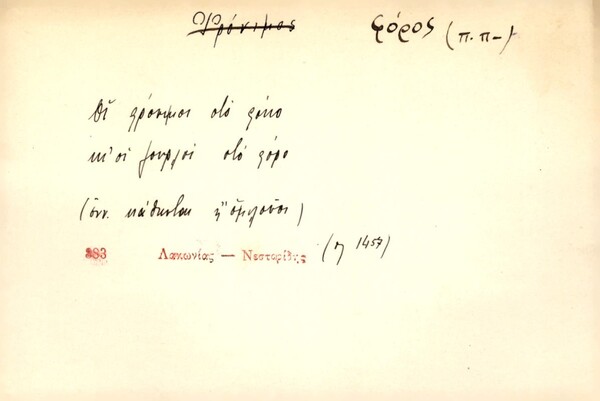 Φρόνιμος φόρος (π. π-)
Οἵ φρόνιμοι στό φόκο
κι' οἱ ζουρλοί στό φόρο
(ἐνν. κάθηνται ἤ ὁμιλοῦσι)
283 Λακωνίας — Νεστορίδης (η 1457)